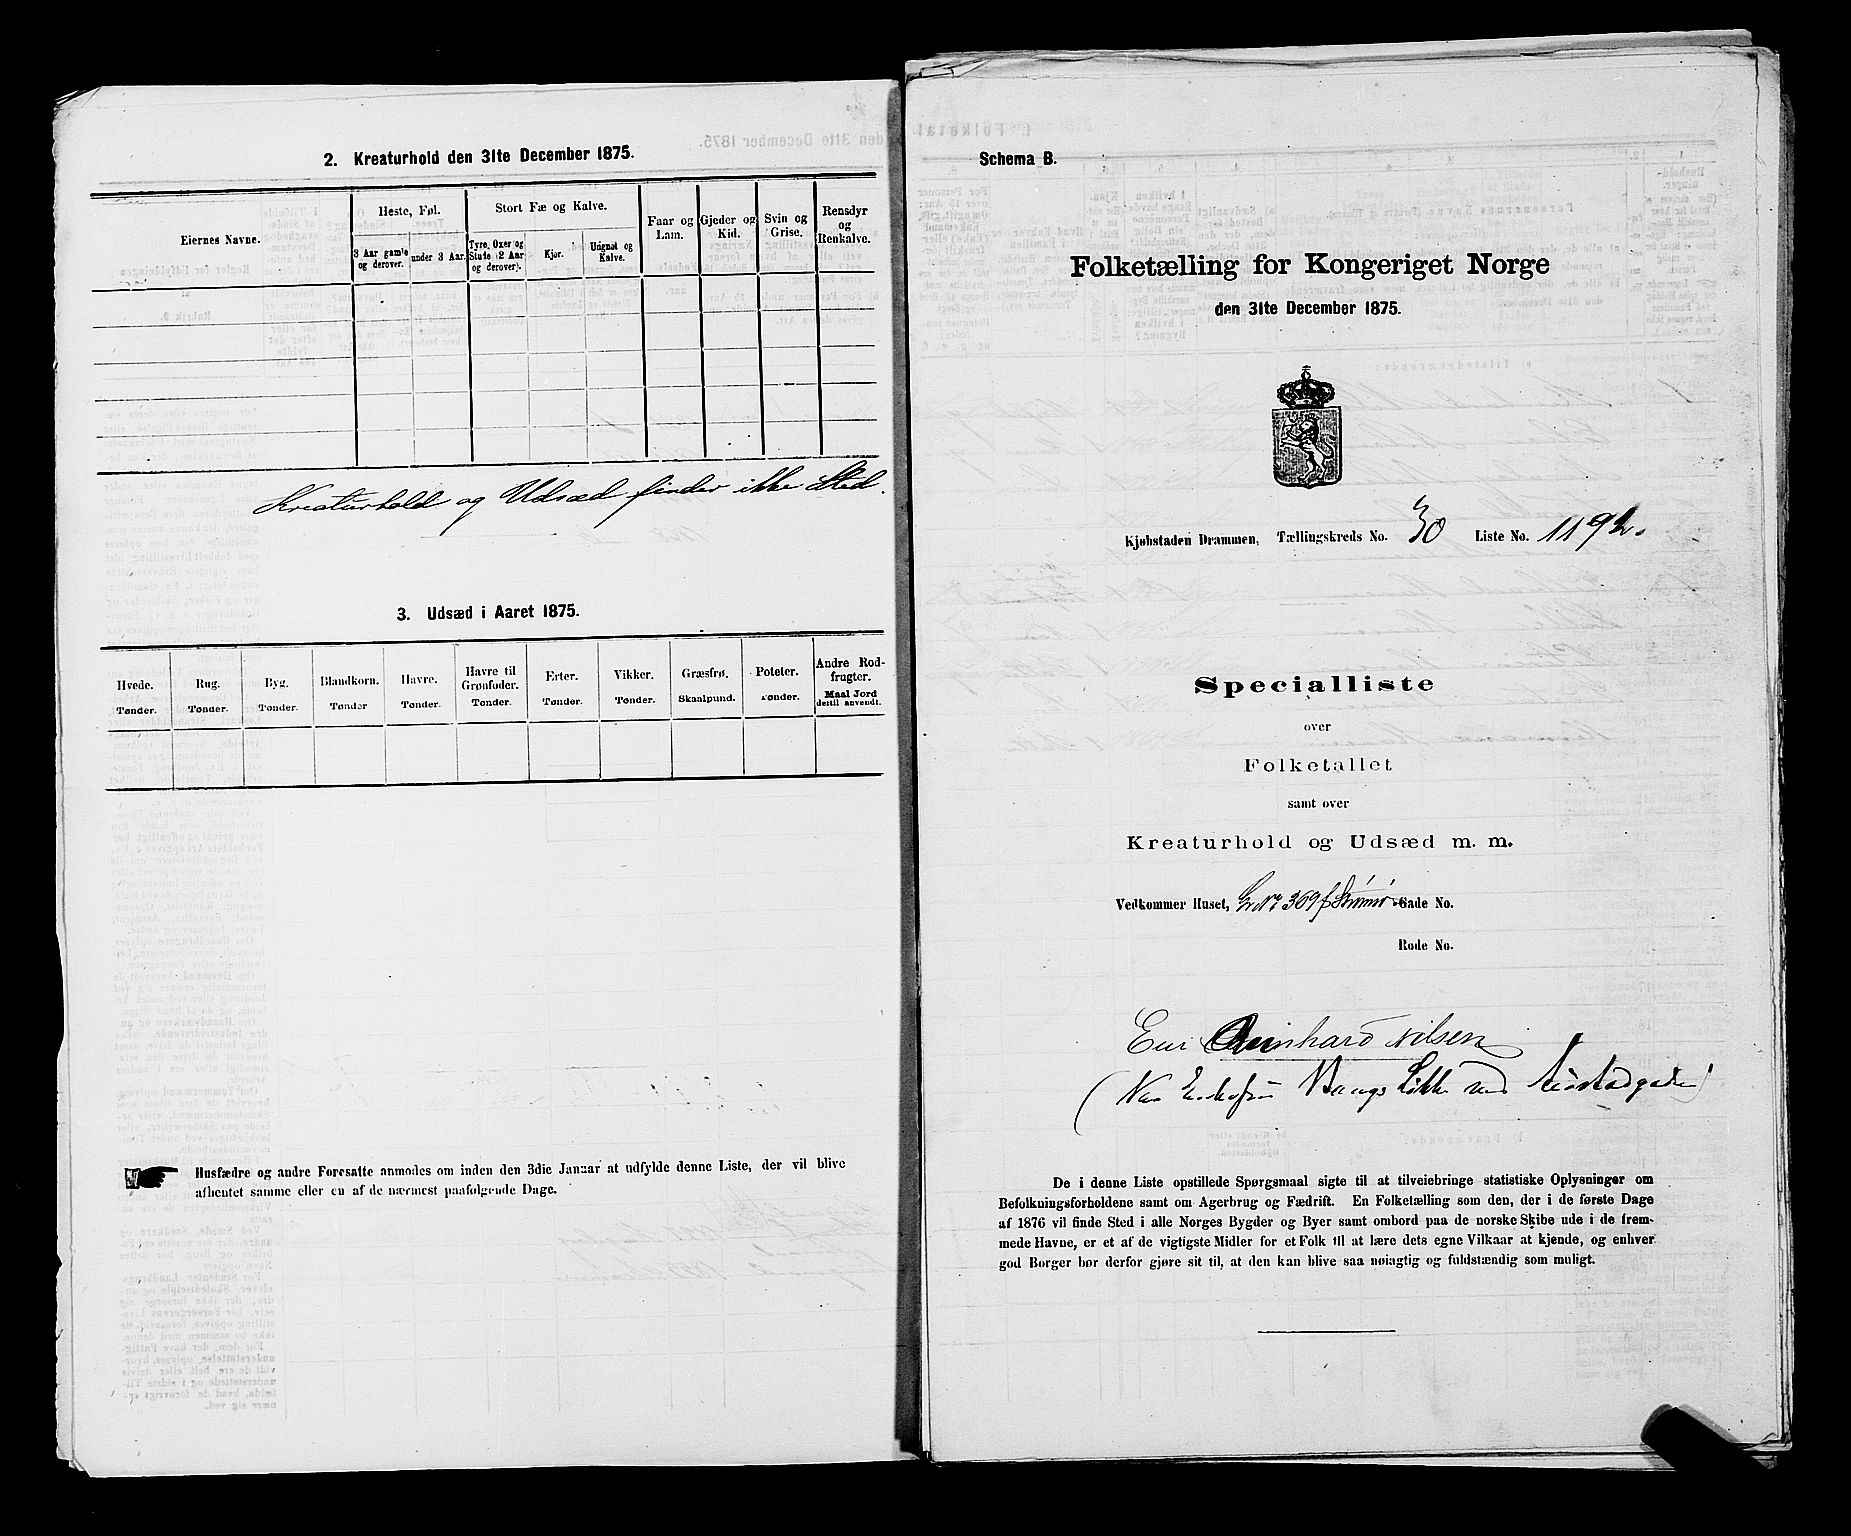 2. Kreaturhold den 31te December 1875.
Eiernes Navne.
Heste, Føl.
3 Aar gamle og derover.
under 3 Aar.
Stort Fæ og Kalve.
Tyre, Oxer og Stute (2 Aar og derover).
Kjør.
Ungnøt og Kalve.
Faar og Lam.
Gjeder og Kid.
Svin og Grise.
Rensdyr og Renkalve.
Kreaturhold og Udsæd finder ikke Sted.
3. Udsæd i Aaret 1875.
Hvede. Tønder.
Rug. Tønder.
Byg. Tønder.
Blandkorn. Tønder
Havre. Tønder.
Havre til Grønfoder. Tønder.
Erter. Tønder.
Vikker. Tønder.
Græsfrø. Skaalpund.
Poteter. Tønder.
Andre Rodfrugter. Maal Jord dertil anvendt.
Husfædre og andre Foresatte anmodes om inden den 3die Januar at udfylde denne Liste, der vil blive
afhentet samme eller en af de nærmest paafølgende Dage.
Schema B.
Folketælling for Kongeriget Norge
den 31te December 1875.
Kjøbstaden Drammen, Tællingskreds No. 30 Liste No. 1192.
Specialliste
over
Folketallet
samt over
Kreaturhold og Udsæd m. m.
Vedkommer Huset, 369 f Strømsø Gade No.
Rode No.
Eier Reinhard Nilsen
Bangs Løkke ved
De i denne Liste opstillede Spørgsmaal sigte til at tilveiebringe statistiske Oplysninger om
Befolkningsforholdene samt om Agerbrug og Fædrift. En Folketælling som den, der i de første Dage
af 1876 vil finde Sted i alle Norges Bygder og Byer samt ombord paa de norske Skibe ude i de frem-
mede Havne, er et af de vigtigste Midler for et Folk til at lære dets egne Vilkaar at kjende, og enhver
god Borger bør derfor gjøre sit til, at den kan blive saa nøiagtig og fuldstændig som muligt.